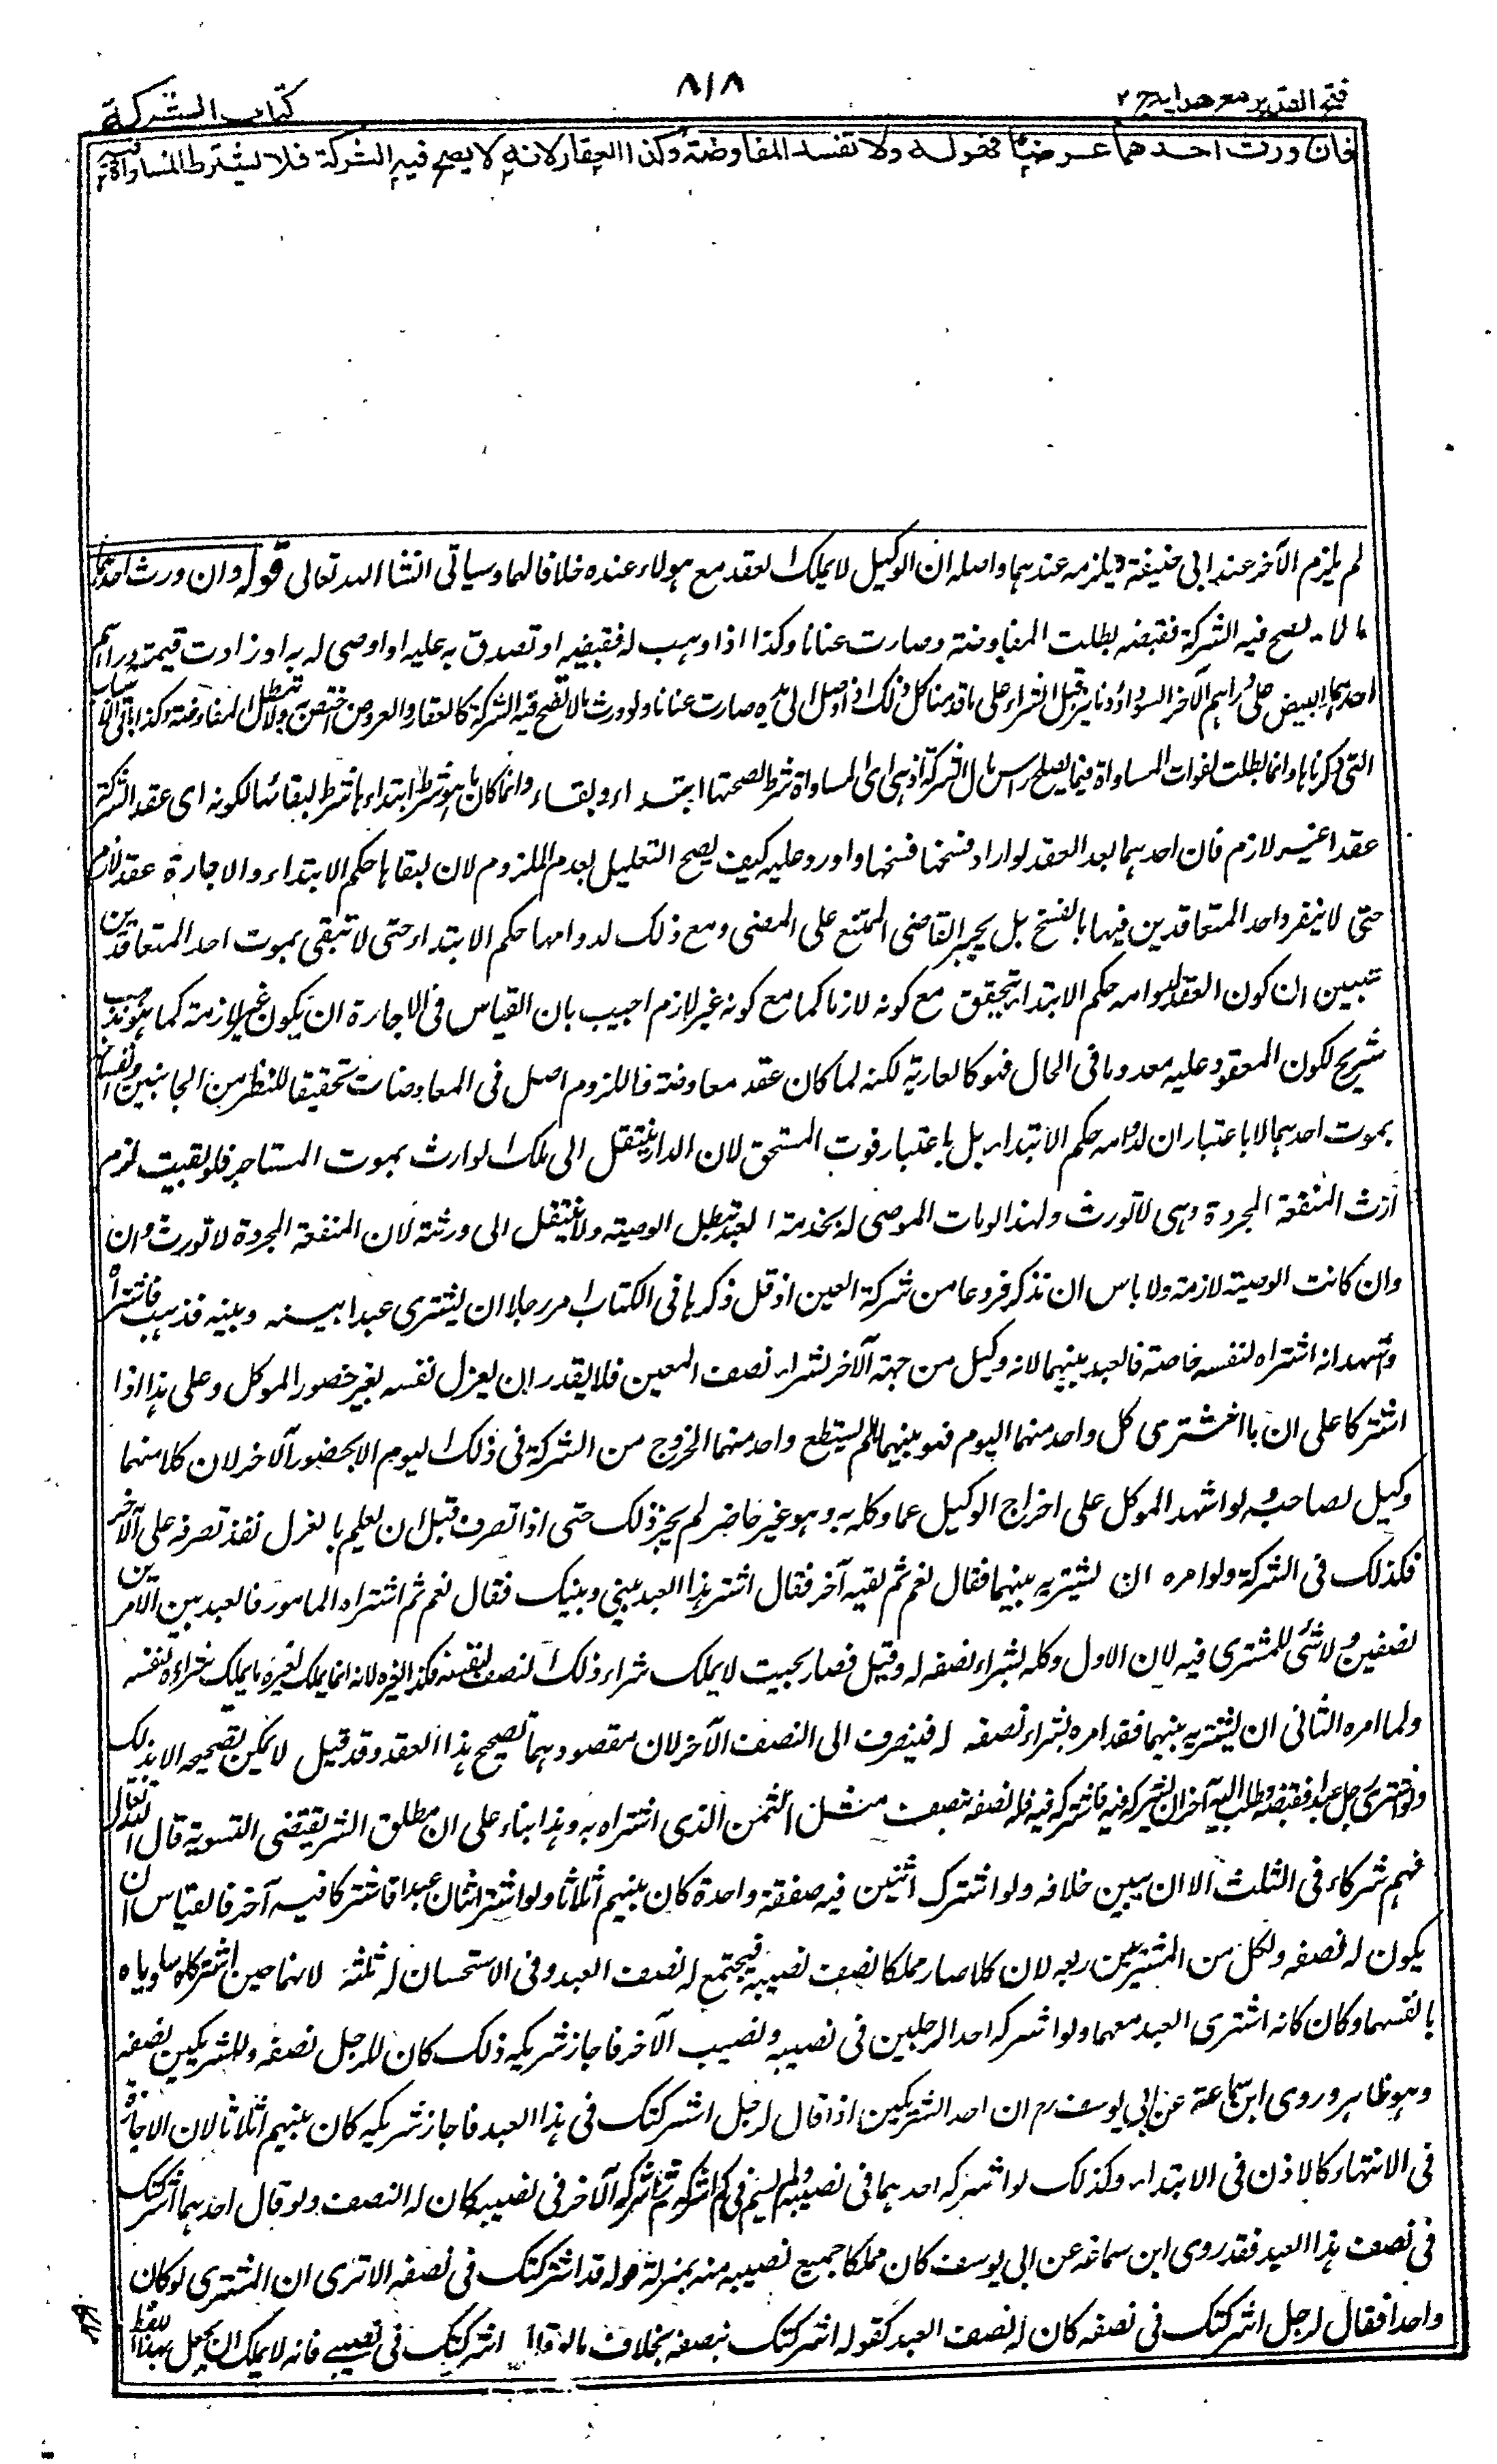 فتح القدير مع هدايه ج ٢
٨١٨
كتاب الشركة
فان ورث احدهما عرضا فهو له ولا تفسد المفاوضة وكذا العقار لانه لا يصح فيه الشركة فلا يشترط المساواة فيه
لم يلزم الآخر عند ابى حنيفة ويلزمه عندهما واصله ان الوكيل لا يملك العقد مع هولاء عنده خلافا لهما وسياتى انشا الله تعالى قوله وان ورث احدهما
مالا يصح فيه الشركة فقبضه بطلت المفاوضة وصارت عنانا وكذا اذا وهب له فقبضه او تصدق به عليه او اوصى له به او زادت قيمة دراهم
احدهما البيض على دراهم الآخر السود او دنانيره قبل الشراء على ما قدمنا كل ذلك اذا وصل الى يده صارت عنانا ولو ورث ما لا تصح فيه الشركة كالعقار والعروض اختص به ولا تبطل المفاوضة وكذا باقى الاسباب
التى ذكرناها وانما بطلت لفوات المساواة فيما يصلح راس مال الشركة اذ هى اى المساواة شرط لصحتها ابتداء وبقاء وانما كان ما هو شرط ابتداء ها شرط لبقائها لكونه اى عقد الشركة
عقدا غير لازم فان احدهما بعد العقد لو اراد فسخها فسخها واورد عليه كيف يصح التعليل بعدم اللزوم لان لبقاها حكم الابتداء والاجارة عقد لازم
حتى لا ينفرد احد المتعاقدين فيها بالفسخ بل يجبر القاضى الممتنع على المضى ومع ذلك لدوامها حكم الابتداء حتى لا تبقى بموت احد المتعاقدين
تبين ان كون العقد لدوامه حكم الابتداء يتحقق مع كونه لازما كما مع كونه غير لازم اجيب بان القياس فى الاجارة ان يكون غير لازمة كما هو مذهب
شريح لكون المعقود عليه معدوما فى الحال فهو كالعارية لكنه لما كان عقد معاوضة فاللزوم اصل فى المعاوضات تحقيقا للنظر من الجانبين وانفساخها
بموت احدهما لا باعتبار ان لدوامه حكم الابتداء بل باعتبار فوت المستحق لان الدار ينتقل الى ملك الوارث بموت المستاجر فلو بقيت لزم
ارث المنفعة المجردة وهى لا تورث ولهذا لو مات الموصى له بخدمة العبد تبطل الوصية ولا ينتقل الى ورثته لان المنفعة المجردة لا تورث وان
وان كانت الوصية لازمة ولا باس ان نذكر فروعا من شركة العين اذ قل ذكرها فى الكتاب امر رجلا ان يشترى عبدا بينه وبينه فذهب فاشتراه
واشهد انه اشتراه لنفسه خاصة فالعبد بينهما لانه وكيل من جهة الآخر بشراء نصف المعين فلا يقدر ان يعزل نفسه بغير حضور الموكل وعلى هذا اذا
اشتركا على ان ما اشترى كل واحد منهما اليوم فهو بينهما لم يستطع واحد منهما الخروج من الشركة فى ذلك اليوم الا بحضور الآخر لان كلا منهما
وكيل لصاحبه ولو اشهد الموكل على اخراج الوكيل عما وكله به وهو غير حاضر لم يجز ذلك حتى اذا تصرف قبل ان يعلم بالعزل نفذ تصرفه على الآخر
فكذلك فى الشركة ولو امره ان يشتريه بينهما فقال نعم ثم لقيه آخر فقال اشتر هذا العبد بينى وبينك فقال نعم ثم اشتراه المامور فالعبد بين الآمرين
نصفين ولا شئ للمشترى فيه لان الاول وكله بشراء نصفه له وقبل فصار بحيث لا يملك شراء ذلك النصف لنفسه فكذا لغيره لانه انما يملك لغيره ما يملك شراءه لنفسه
ولما امره الثانى ان يشتريه بينهما فقد امره بشراء نصفه له فينصرف الى النصف الآخر لان مقصودهما تصحيح هذا العقد وقد قبل لا يمكن تصحيحه الا بذلك
ولو اشترى رجل عبدا فقبضه وطلب اليه آخر ان يشركه فيه فاشركه فيه فله نصفه بنصف مثل الثمن الذى اشتراه به وهذا بناء على ان مطلق الشركة يقتضى التسوية قال الله تعالى
فهم شركاء فى الثلث الا ان يبين خلافه ولو اشترك اثنين فيه صفقة واحدة كان بينهم اثلاثا ولو اشترى اثنان عبدا فاشتركا فيه آخر فالقياس ان
يكون له نصفه ولكل من المشتريين ربعه لان كلا صار مملكا نصف نصيبه فيجتمع له نصف العبد وفى الاستحسان له ثلثه لانهما حين اشركاه ساوياه
بانفسهما وكان كانه اشترى العبد معهما ولو اشركه احد الرجلين فى نصيبه ونصيب الآخر فاجاز شريكه ذلك كان للرجل نصفه وللشريكين نصفه
وهو ظاهر وروى ابن سماعة عن ابى يوسف رم ان احد الشريكين اذا قال لرجل اشركتك فى هذا العبد فاجاز شريكه كان بينهم اثلاثا لان الاجازة
فى الانتهاء كالاذن فى الابتداء وكذلك لو اشركه احدهما فى نصيبه ولم يسم فى كم اشركه ثم اشركه الآخر فى نصيبه كان له النصف ولو قال احدهما اشركتك
فى نصف هذا العبد فقد روى ابن سماعة عن ابى يوسف كان مملكا جميع نصيبه منه بمنزلة قوله قد اشركتك فى نصفه الا ترى ان المشترى لو كان
واحدا فقال لرجل اشركتك فى نصفه كان له نصف العبد كقوله اشركتك بنصفه بخلاف ما لو قال اشركتك فى نصيبى فانه لا يملك ان يجعل بهذا اللفظ